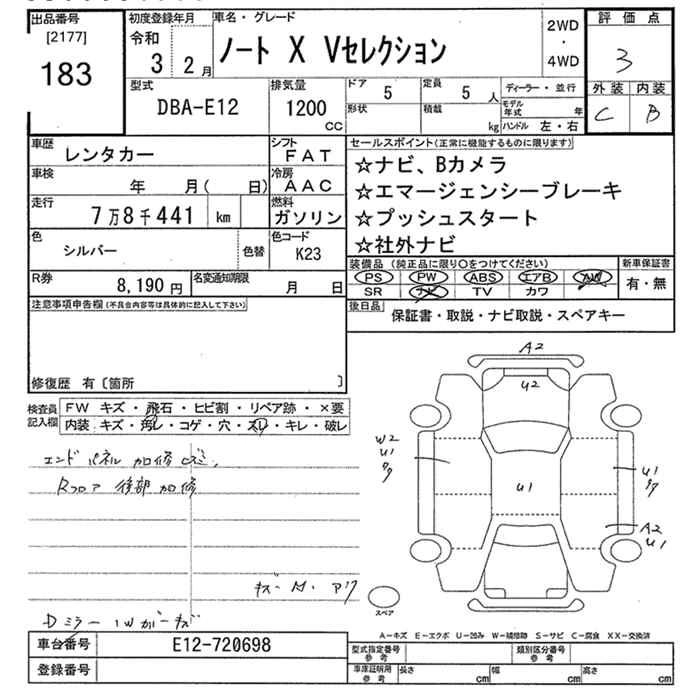 出品番号
[2177]
183
初度登録年月
令和
3 2月
車名・グレード
ノート X Vセレクション
2WD
・
4WD
評価点
3
外装 内装
C B
型式
DBA-E12
排気量
1200
CC
ドア 5
定員 5 人
形状
積載 kg
ディーラー・並行
モデル年式 年
ハンドル 左・右
車歴
レンタカー
シフト
FAT
車検
年 月( 日)
冷房
AAC
走行
7万8千441 km
燃料
ガソリン
色
シルバー
色替
色コード
K23
R券
8,190円
名変通知期限
月 日
セールスポイント(正常に機能するものに限ります)
☆ナビ、Bカメラ
☆エマージェンシーブレーキ
☆プッシュスタート
☆社外ナビ
装備品(純正品に限り○をつけてください)
PS PW ABS エアB AW
SR ナビ TV カワ
新車保証書
有・無
後日品
保証書・取説・ナビ取説・スペアキー
注意事項申告欄(不具合内容等は具体的に記入して下さい)
修復歴 有〔箇所 〕
検査員
記入欄
FW キズ・飛石・ヒビ割・リペア跡・×要
内装 キズ・汚レ・コゲ・穴・スレ・キレ・破レ
エンドパネル加修
Rフロア 後部加修
Dミラー
A2
U2
W2
U1
U1
U1
A2
U1
スペア
A-キズ E-エクボ U-凹み W-補修跡 S-サビ C-腐食 XX-交換済
車台番号
E12-720698
登録番号
型式指定番号
参考
類別区分番号
参考
車庫証明用
参考
長さ cm
幅 cm
高さ cm